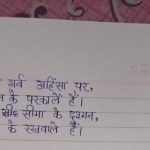 गर्व अहिंसा पर,
के परकाले हैं।
सीमा के दुश्मन,
के रखवाले हैं।